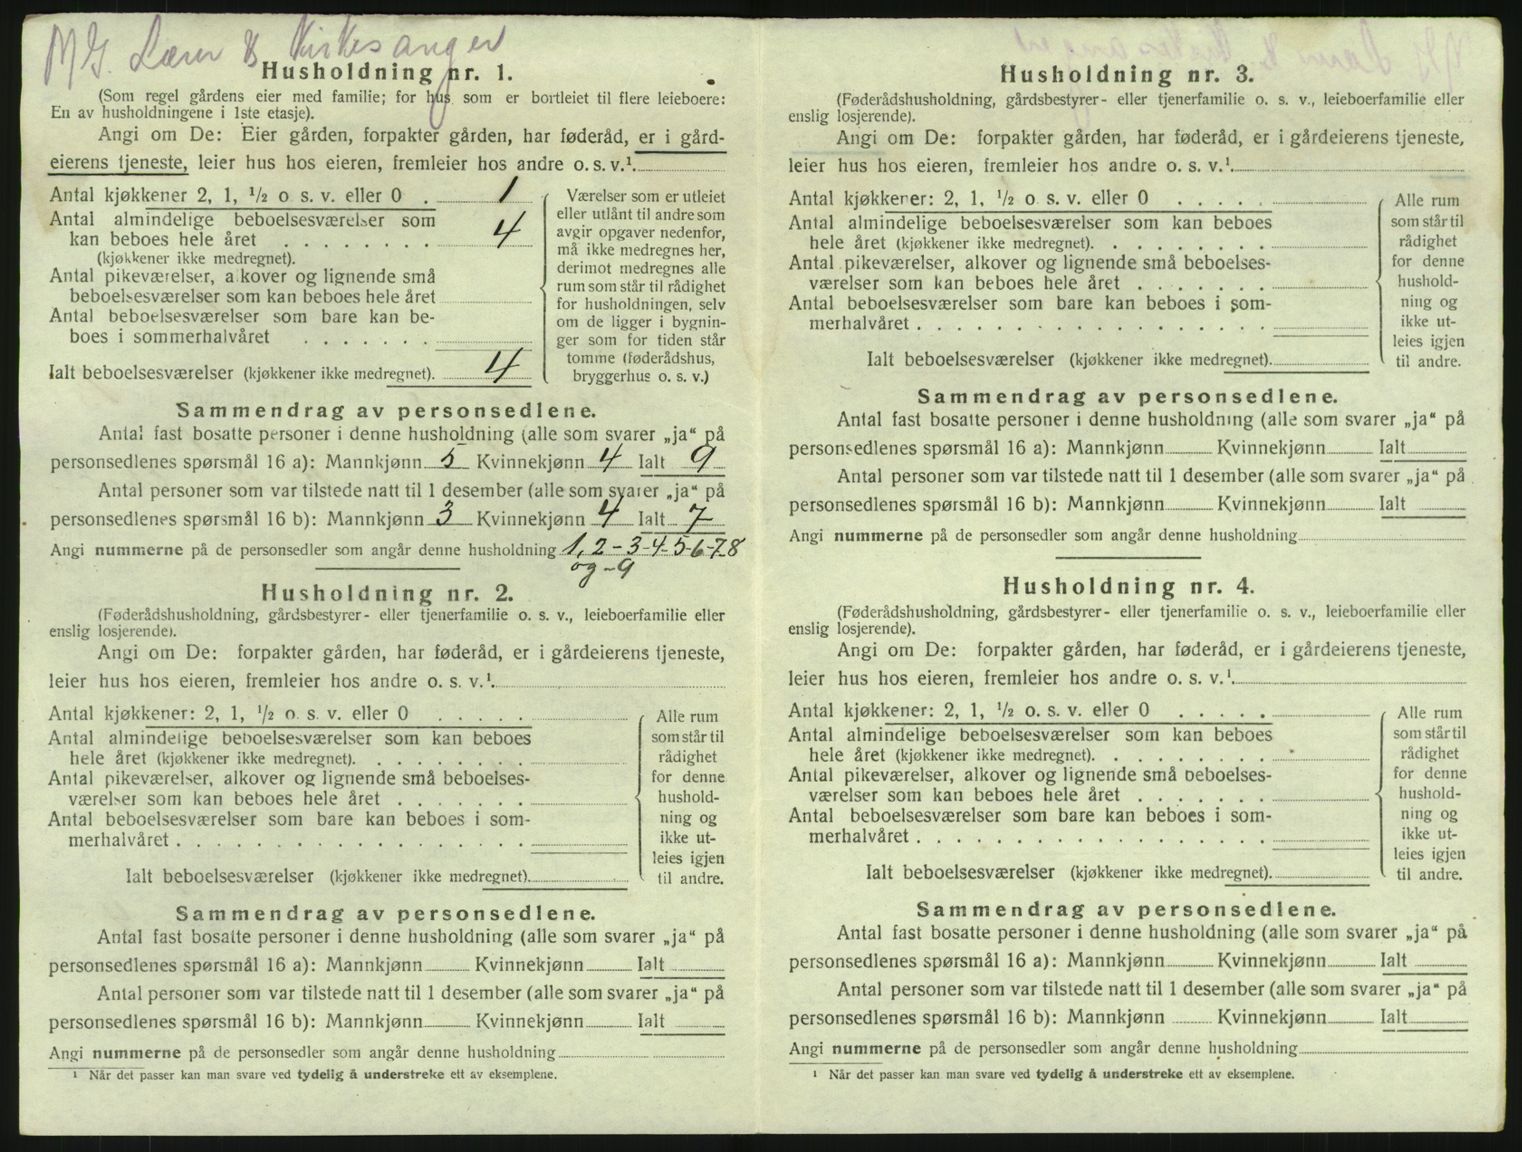 Lærer & Kirkesanger
Husholdning nr. 1.
(Som regel gårdens eier med familie; for hus som er bortleiet til flere leieboere:
En av husholdningene i 1ste etasje).
Angi om De: Eier gården, forpakter gården, har føderåd, er i gård-
eierens tjeneste, leier hus hos eieren, fremleier hos andre o. s. v.¹.
Antal kjøkkener 2, 1, ½ o s. v. eller 0 . 1
Antal almindelige beboelsesværelser som
kan beboes hele året . . . . . . . . 4
(kjøkkener ikke medregnet).
Antal pikeværelser, alkover og lignende små
beboelsesværelser som kan beboes hele året
Antal beboelsesværelser som bare kan be-
boes i sommerhalvåret . . . . . . .
Ialt beboelsesværelser (kjøkkener ikke medregnet). 4
Værelser som er utleiet
eller utlånt til andre som
avgir opgaver nedenfor,
må ikke medregnes her,
derimot medregnes alle
rum som står til rådighet
for husholdningen, selv
om de ligger i bygnin-
ger som for tiden står
tomme (føderådshus,
bryggerhus o. s. v.)
Sammendrag av personsedlene.
Antal fast bosatte personer i denne husholdning (alle som svarer „ja“ på
personsedlenes spørsmål 16 a): Mannkjønn 5 Kvinnekjønn 4 Ialt 9
Antal personer som var tilstede natt til 1 desember (alle som svarer „ja“ på
personsedlenes spørsmål 16 b): Mannkjønn 3 Kvinnekjønn 4 Ialt 7
Angi nummerne på de personsedler som angår denne husholdning 1, 2-3-4-5-6-7-8
og-9
Husholdning nr. 2.
(Føderådshusholdning, gårdsbestyrer- eller tjenerfamilie o. s. v., leieboerfamilie eller
enslig losjerende).
Angi om De: forpakter gården, har føderåd, er i gårdeierens tjeneste,
leier hus hos eieren, fremleier hos andre o. s. v.¹.
Antal kjøkkener: 2, 1, ½ o. s. v. eller 0 . . . . .
Antal almindelige beboelsesværelser som kan beboes
hele året (kjøkkener ikke medregnet). . . . . . . .
Antal pikeværelser, alkover og lignende små beboelses-
værelser som kan beboes hele året . . . . . . .
Antal beboelsesværelser som bare kan beboes i som-
merhalvåret . . . . . . . . . . . . . . . . . .
Ialt beboelsesværelser (kjøkkener ikke medregnet).
Alle rum
som står til
rådighet
for denne
hushold-
ning og
ikke ut-
leies igjen
til andre.
Sammendrag av personsedlene.
Antal fast bosatte personer i denne husholdning (alle som svarer „ja“ på
personsedlenes spørsmål 16 a): Mannkjønn Kvinnekjønn Ialt
Antal personer som var tilstede natt til 1 desember (alle som svarer „ja“ på
personsedlenes spørsmål 16 b): Mannkjønn Kvinnekjønn Ialt
Angi nummerne på de personsedler som angår denne husholdning
¹ Når det passer kan man svare ved tydelig å understreke ett av eksemplene.
Husholdning nr. 3.
(Føderådshusholdning, gårdsbestyrer- eller tjenerfamilie o. s. v., leieboerfamilie eller
enslig losjerende).
Angi om De: forpakter gården, har føderåd, er i gårdeierens tjeneste,
leier hus hos eieren, fremleier hos andre o. s. v.¹.
Antal kjøkkener: 2, 1, ½ o. s. v. eller 0 . . . . .
Antal almindelige beboelsesværelser som kan beboes
hele året (kjøkkener ikke medregnet). . . . . . . .
Antal pikeværelser, alkover og lignende små beboelses-
værelser som kan beboes hele året . . . . . . .
Antal beboelsesværelser som bare kan beboes i som-
merhalvåret . . . . . . . . . . . . . . . . . .
Ialt beboelsesværelser (kjøkkener ikke medregnet).
Alle rum
som står til
rådighet
for denne
hushold-
ning og
ikke ut-
leies igjen
til andre.
Sammendrag av personsedlene.
Antal fast bosatte personer i denne husholdning (alle som svarer „ja“ på
personsedlenes spørsmål 16 a): Mannkjønn Kvinnekjønn Ialt
Antal personer som var tilstede natt til 1 desember (alle som svarer „ja“ på
personsedlenes spørsmål 16 b): Mannkjønn Kvinnekjønn Ialt
Angi nummerne på de personsedler som angår denne husholdning
Husholdning nr. 4.
(Føderådshusholdning, gårdsbestyrer- eller tjenerfamilie o. s. v., leieboerfamilie eller
enslig losjerende).
Angi om De: forpakter gården, har føderåd, er i gårdeierens tjeneste,
leier hus hos eieren, fremleier hos andre o. s. v.¹.
Antal kjøkkener: 2, 1, ½ o. s. v. eller 0 . . . . .
Antal almindelige beboelsesværelser som kan beboes
hele året (kjøkkener ikke medregnet). . . . . . . .
Antal pikeværelser, alkover og lignende små beboelses-
værelser som kan beboes hele året . . . . . . .
Antal beboelsesværelser som bare kan beboes i som-
merhalvåret . . . . . . . . . . . . . . . . . .
Ialt beboelsesværelser (kjøkkener ikke medregnet).
Alle rum
som står til
rådighet
for denne
hushold-
ning og
ikke ut-
leies igjen
til andre.
Sammendrag av personsedlene.
Antal fast bosatte personer i denne husholdning (alle som svarer „ja“ på
personsedlenes spørsmål 16 a): Mannkjønn Kvinnekjønn Ialt
Antal personer som var tilstede natt til 1 desember (alle som svarer „ja“ på
personsedlenes spørsmål 16 b): Mannkjønn Kvinnekjønn Ialt
Angi nummerne på de personsedler som angår denne husholdning
¹ Når det passer kan man svare ved tydelig å understreke ett av eksemplene.